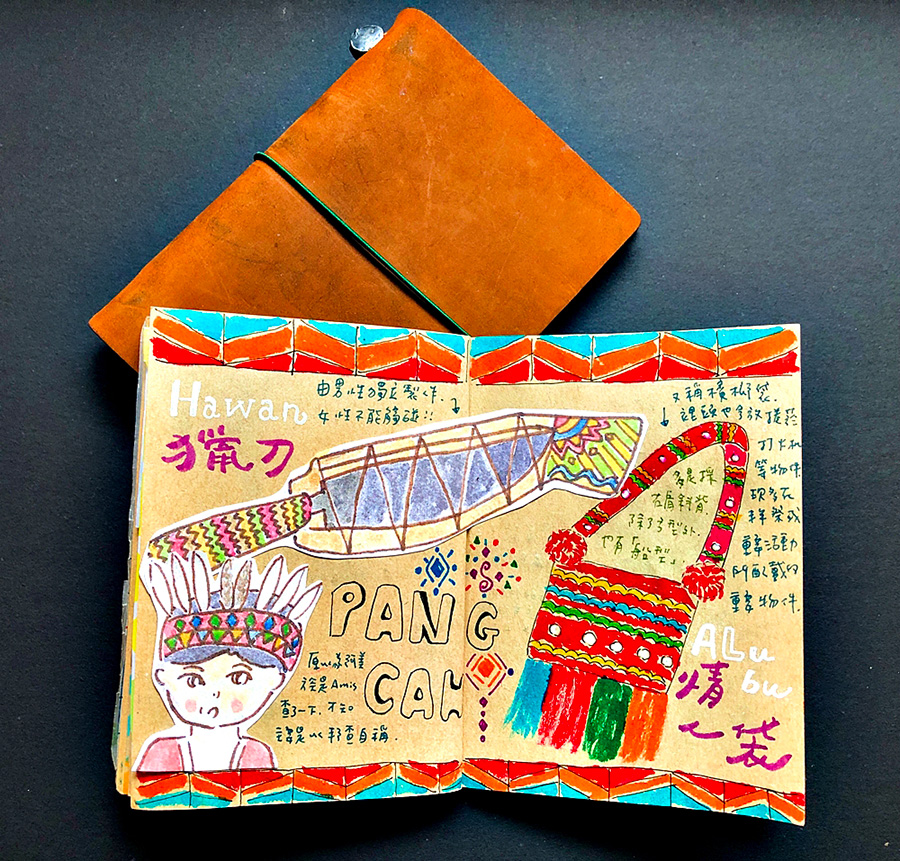 Hawan
獵刀
由男性獨立製作.
女性不能觸碰!!
PANG
CAH
原以為阿美
族是 Amis
查了一下,不知
邦查自稱.
又稱檳榔袋.
裡頭也會放菸
打火機
等物件
現多在
祥祭或
重要活動
所配戴的
重要物件.
多是採
右肩斜背
除了方型外.
也有「船型」
ALu
bu
情
人袋